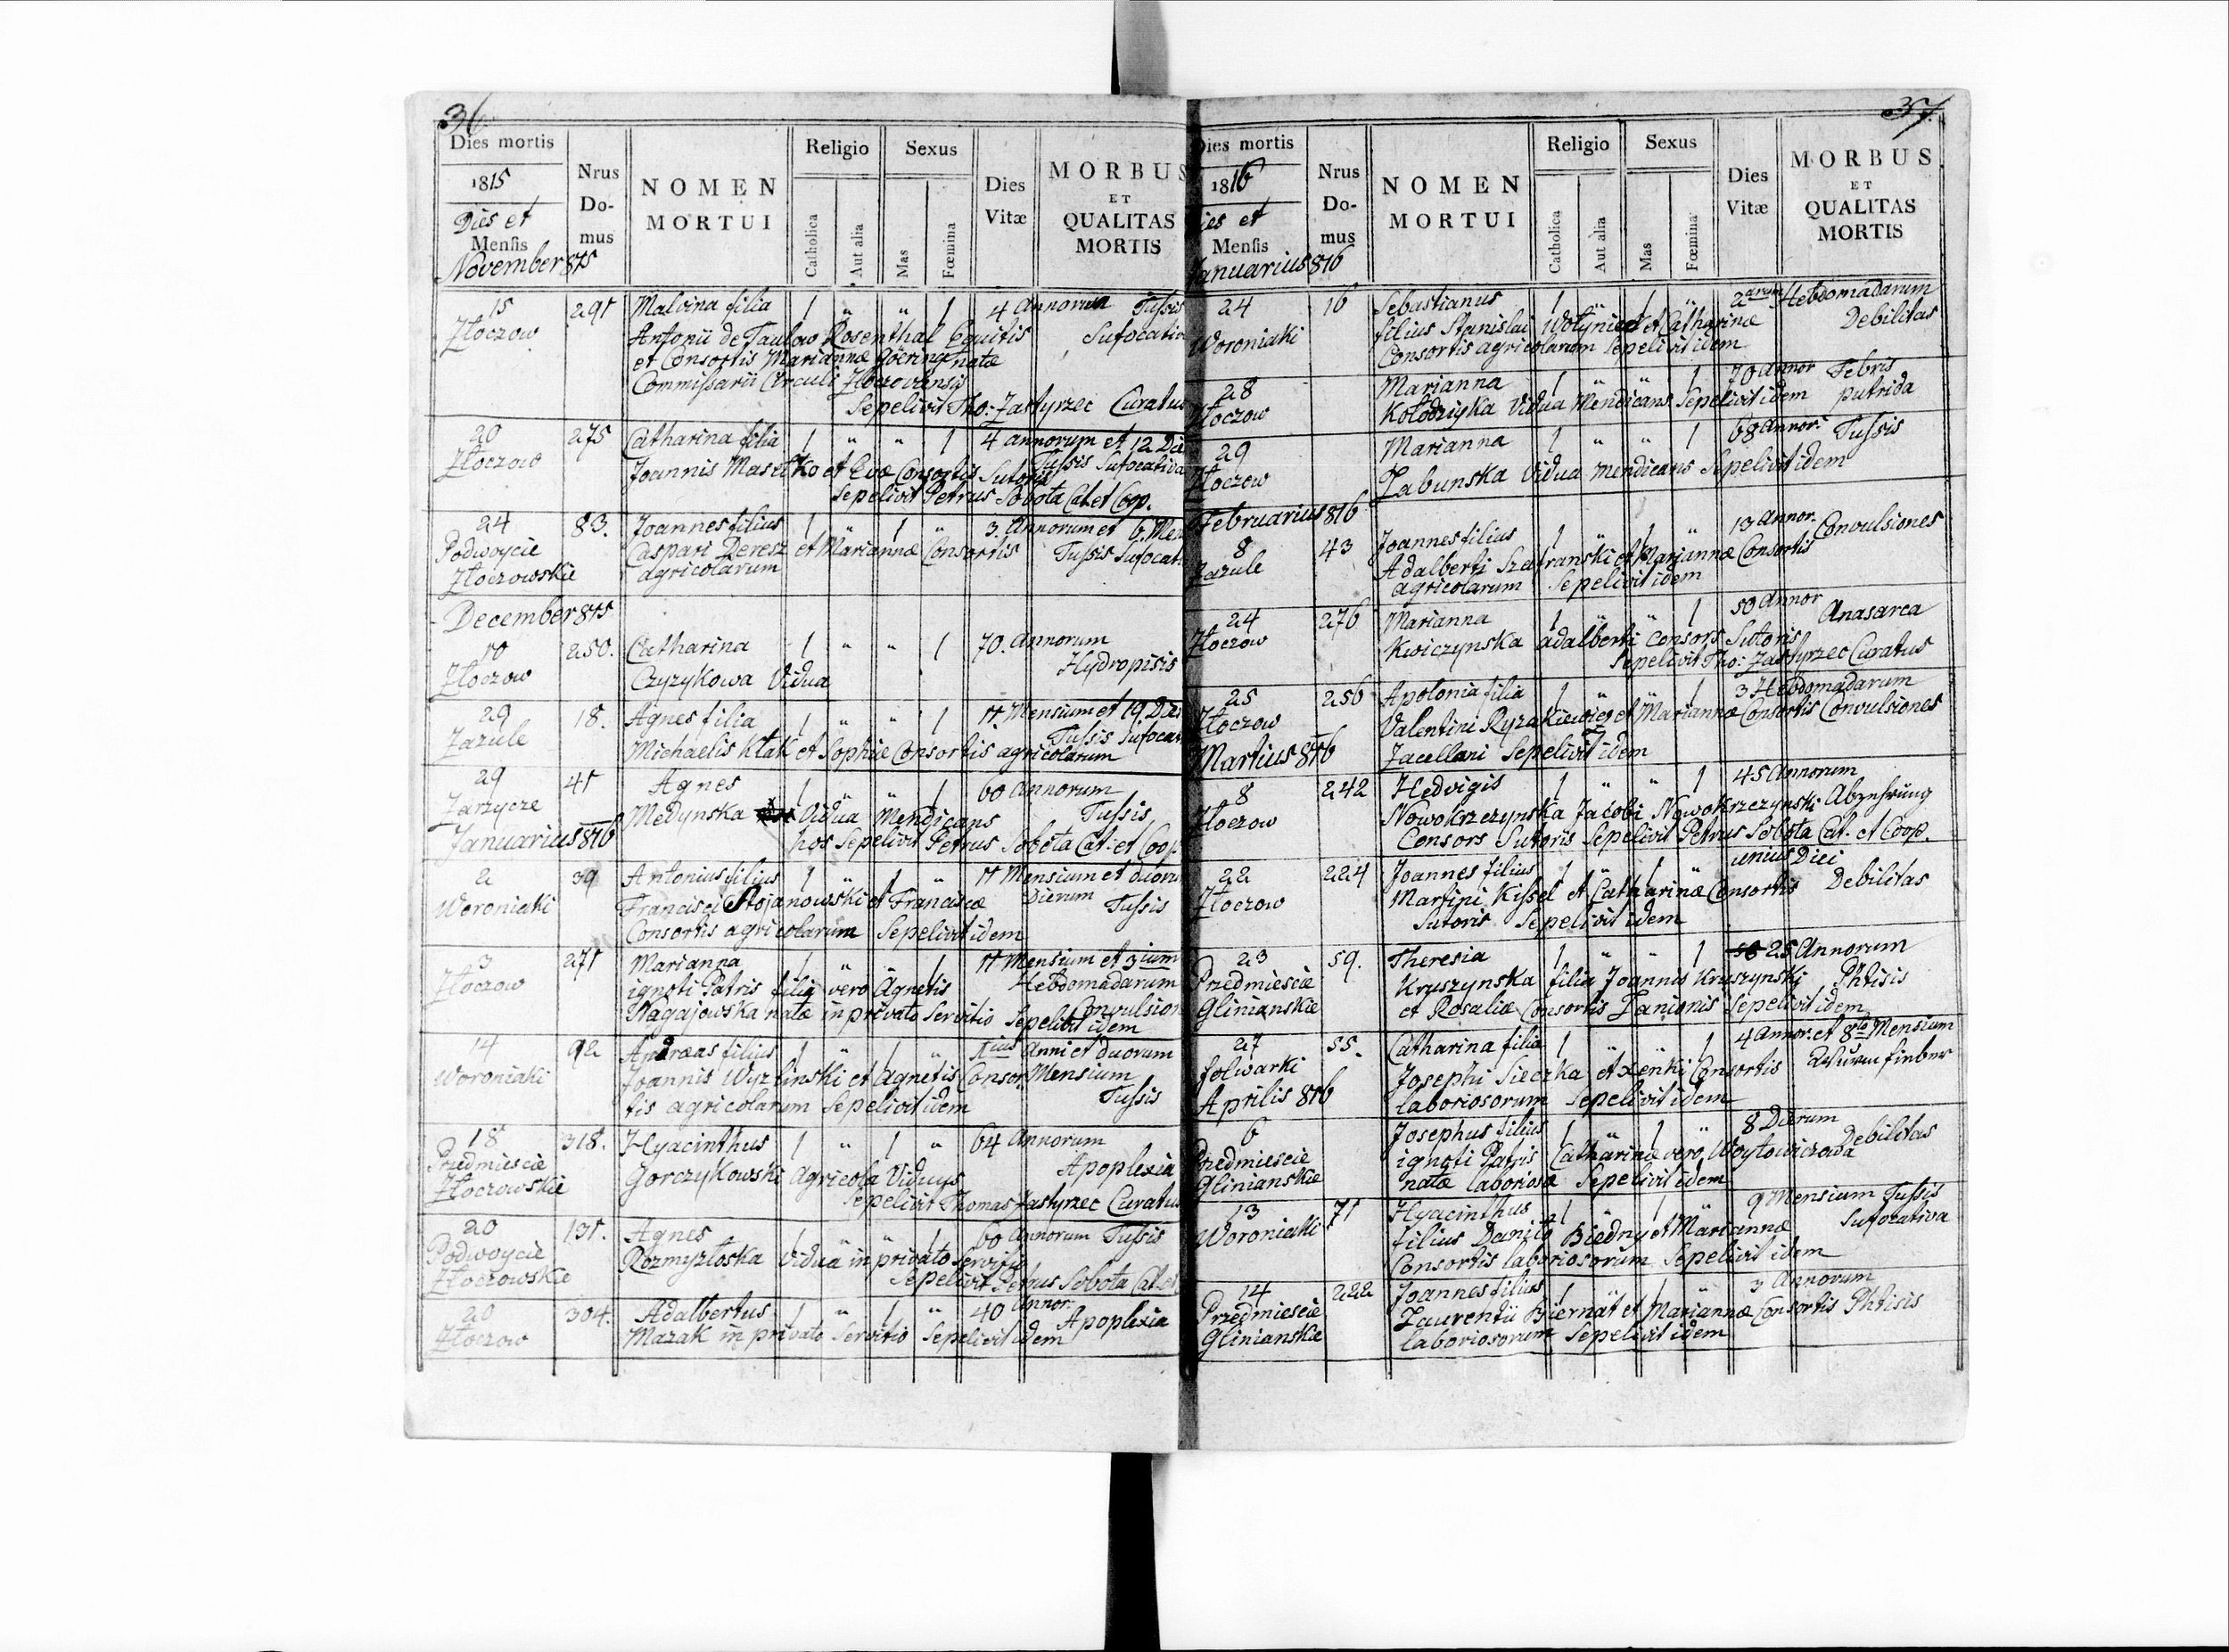 36
Dies mortis
1815
Dies et
Mensis
November 815
Nrus
Do-
mus
NOMEN
MORTUI
Religio
Catholica
Aut alia
Sexus
Mas
Fœmina
Dies
Vitæ
MORBUS
ET
QUALITAS
MORTIS
15 291 Malvina filia 1 " " 1 4 Annorum Tussis
Złoczow Antonii de Taulow Rosenthal Equitis Sufocativa
et Consortis Mariannæ Göeringe natæ
Commissarii Circuli Złoczoviensis
Sepelivit Tho: Zastyrzec Curatus
20 275 Catharina filia 1 " " 1 4 annorum et 12 Die
Złoczow Joannis Masetko et Evæ Consortis Sutoris Tussis Sufocativa
Sepelivit Petrus Sobota Cat. et Coop.
24 83. Joannes filius 1 " 1 " 3. Annorum et 6. Men
Podwoycie Caspari Deresz et Mariannæ Consortis Tussis Sufocati
Złoczowskie agricolarum
December 815
10 250. Catharina 1 " " 1 70. Annorum
Złoczow Czyzykowa Vidua Hydropisis
29 18. Agnes filia 1 " " 1 11 Mensium et 19 Die
Zazule Michaelis Ktak et Sophiæ Consortis agricolarum Tussis Sufocat
29 41 Agnes 1 " " 1 60 Annorum
Zarzycze Medynska Vidua Mendicans Tussis
Januarius 816 hos Sepelivit Petrus Sobota Cat. et Coop
2 39 Antonius filius 1 " 1 " 11 Mensium et duoru
Woroniaki Francisci Stojanowski et Franciscæ Dierum Tussis
Consortis agricolarum Sepelivit idem
3 271 Marianna 1 " " 1 11 Mensium et 3 ium
Złoczow ignoti Patris filia vero Agnetis Hebdomadarum
Nagajowska natæ in privato Servitio Convulsion
Sepelivit idem
14 92 Andræas filius 1 " 1 " 1 ius Anni et duorum
Woroniaki Joannis Wyzlinski et Agnetis Consor- Mensium
tis agricolarum Sepelivit idem Tussis
18 318. Hyacinthus 1 " 1 " 64 Annorum
Przedmiescie Gorczykowski Agricola Viduus Apoplexia
Złoczowskie Sepelivit Thomas Zastyrzec Curatus
20 131. Agnes 1 " " 1 60 Annorum Tussis
Podwoycie Rozmyzloska Vidua in privato Servitio
Złoczowskie Sepelivit Petrus Sobota Cat. et
20 304. Adalbertus 1 " 1 " 40 Annor.
Złoczow Mazak in privato Servitio Sepelivit idem Apoplexia
37.
Dies mortis
1816
Dies et
Mensis
Januarius 816
Nrus
Do-
mus
NOMEN
MORTUI
Religio
Catholica
Aut alia
Sexus
Mas
Fœmina
Dies
Vitæ
MORBUS
ET
QUALITAS
MORTIS
24 16 Sebastianus 1 " 1 " 2 arum Hebdomadarum
Woroniaki filius Stanislai Wołyniec et Catharinæ Debilitas
Consortis agricolarum Sepelivit idem
28 Marianna 1 " " 1 70 Annor Febris
Złoczow Kołodziyka Vidua Mendicans Sepelivit idem putrida
29 Marianna 1 " " 1 68 Annor. Tussis
Złoczow Labunska Vidua mendicans Sepelivit idem
Februarius 816
8 43 Joannes filius 1 " 1 " 13 Annor. Convulsiones
Zazule Adalberti Szafranski et Mariannæ Consortis
agricolarum Sepelivit idem
24 276 Marianna 1 " " 1 50 Annor Anasarca
Złoczow Kwiczynska adalberti Consors Sutoris
Sepelivit Tho: Zastyrzec Curatus
25 256 Apolonia filia 1 " " 1 3 Hebdomadarum
Złoczow Valentini Ryzakiewicz et Mariannæ Consortis Convulsiones
Martius 816 Zacellani Sepelivit idem
8 242 Hedvigis 1 " " 1 45 Annorum
Złoczow Nowokrzczynska Jacobi Nowokrzczynski Abzehrung
Consors Sutoris Sepelivit Petrus Sobota Cat. et Coop.
22 224 Joannes filius 1 " 1 " unius Diei
Złoczow Martini Kissel et Catharinæ Consortis Debilitas
Sutoris Sepelivit idem
23 59. Theresia 1 " " 1 25 Annorum
Przedmiescie Kruszynska filia Joannis Kruszynski Phtisis
Glinianskie et Rosaliæ Consortis Lanionis Sepelivit idem
27 55. Catharina filia 1 " " 1 4 Annor. et 8to Mensium
folwarki Josephi Sieczka et Xenki Consortis
Aprilis 816 laboriosorum Sepelivit idem
6 Josephus filius 1 " 1 " 8 Dierum
Przedmiescie ignoti Patris Catharinæ vero Woytowiczowa Debilitas
Glinianskie natæ laboriosæ Sepelivit idem
13 71 Hyacinthus 1 " 1 " 9 Mensium Tussis
Woroniaki filius Daniło Biedny et Mariannæ Sufocativa
Consortis laboriosorum Sepelivit idem
14 222 Joannes filius 1 " 1 " 3 Annorum
Przedmiescie Laurentii Biernat et Mariannæ Consortis Phtisis
Glinianskie laboriosorum Sepelivit idem